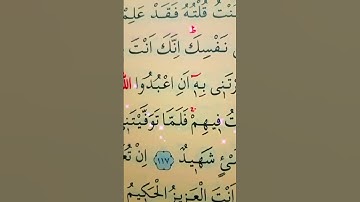 نْتُ قُلْتُهُ فَقَدْ عَلِمْ
نَفْسِكَ اِنَّكَ اَنْتَ
رْتَنٖى بِهٖٓ اَنِ اعْبُدُوا اللّٰ
تُ فٖيهِمْ فَلَمَّا تَوَفَّيْتَنٖى
ئٍ شَهٖيدٌ ﴿١١٧﴾ اِنْ تُعَ
اَنْتَ الْعَزٖيزُ الْحَكٖيمُ